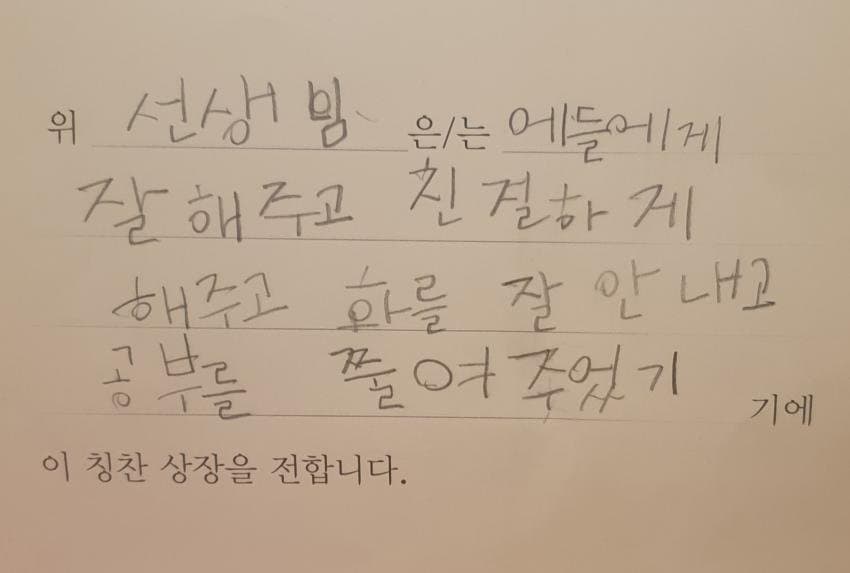 위 선생빔 은/는 에들에게
잘 해주고 친절하게
해주고 화를 잘 안 내고
공부를 쭐여주었기
기에
이 칭찬 상장을 전합니다.